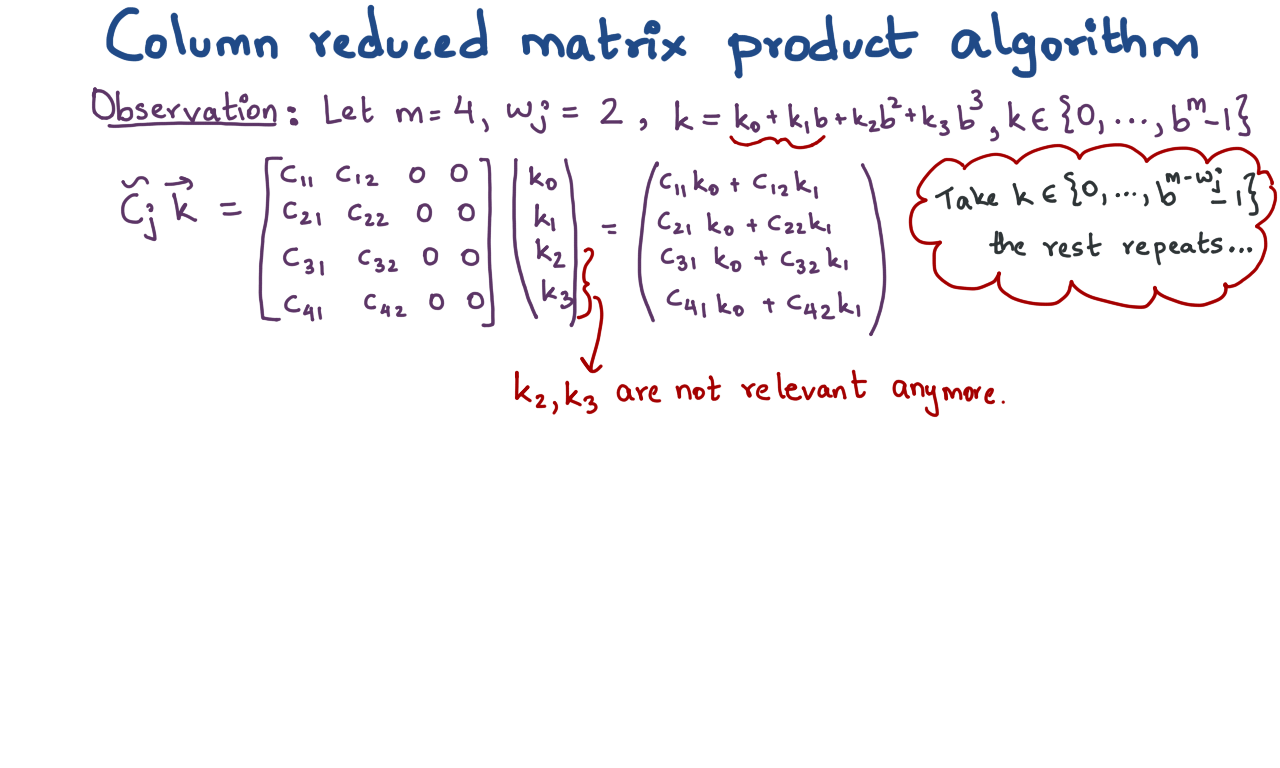 Column reduced matrix product algorithm
Observation: Let m = 4, wⱼ = 2, k = k₀ + k₁b + k₂b² + k₃b³, k ∈ {0, ..., bᵐ-1}
C̃ⱼ k⃗ = [C₁₁ C₁₂ 0 0] (k₀) = (C₁₁k₀ + C₁₂k₁)
[C₂₁ C₂₂ 0 0] (k₁) (C₂₁ k₀ + C₂₂k₁)
[C₃₁ C₃₂ 0 0] (k₂) (C₃₁ k₀ + C₃₂k₁)
[C₄₁ C₄₂ 0 0] (k₃) (C₄₁k₀ + C₄₂k₁)
Take k ∈ {0, ..., b^{m-wⱼ}-1}
the rest repeats...
k₂, k₃ are not relevant anymore.